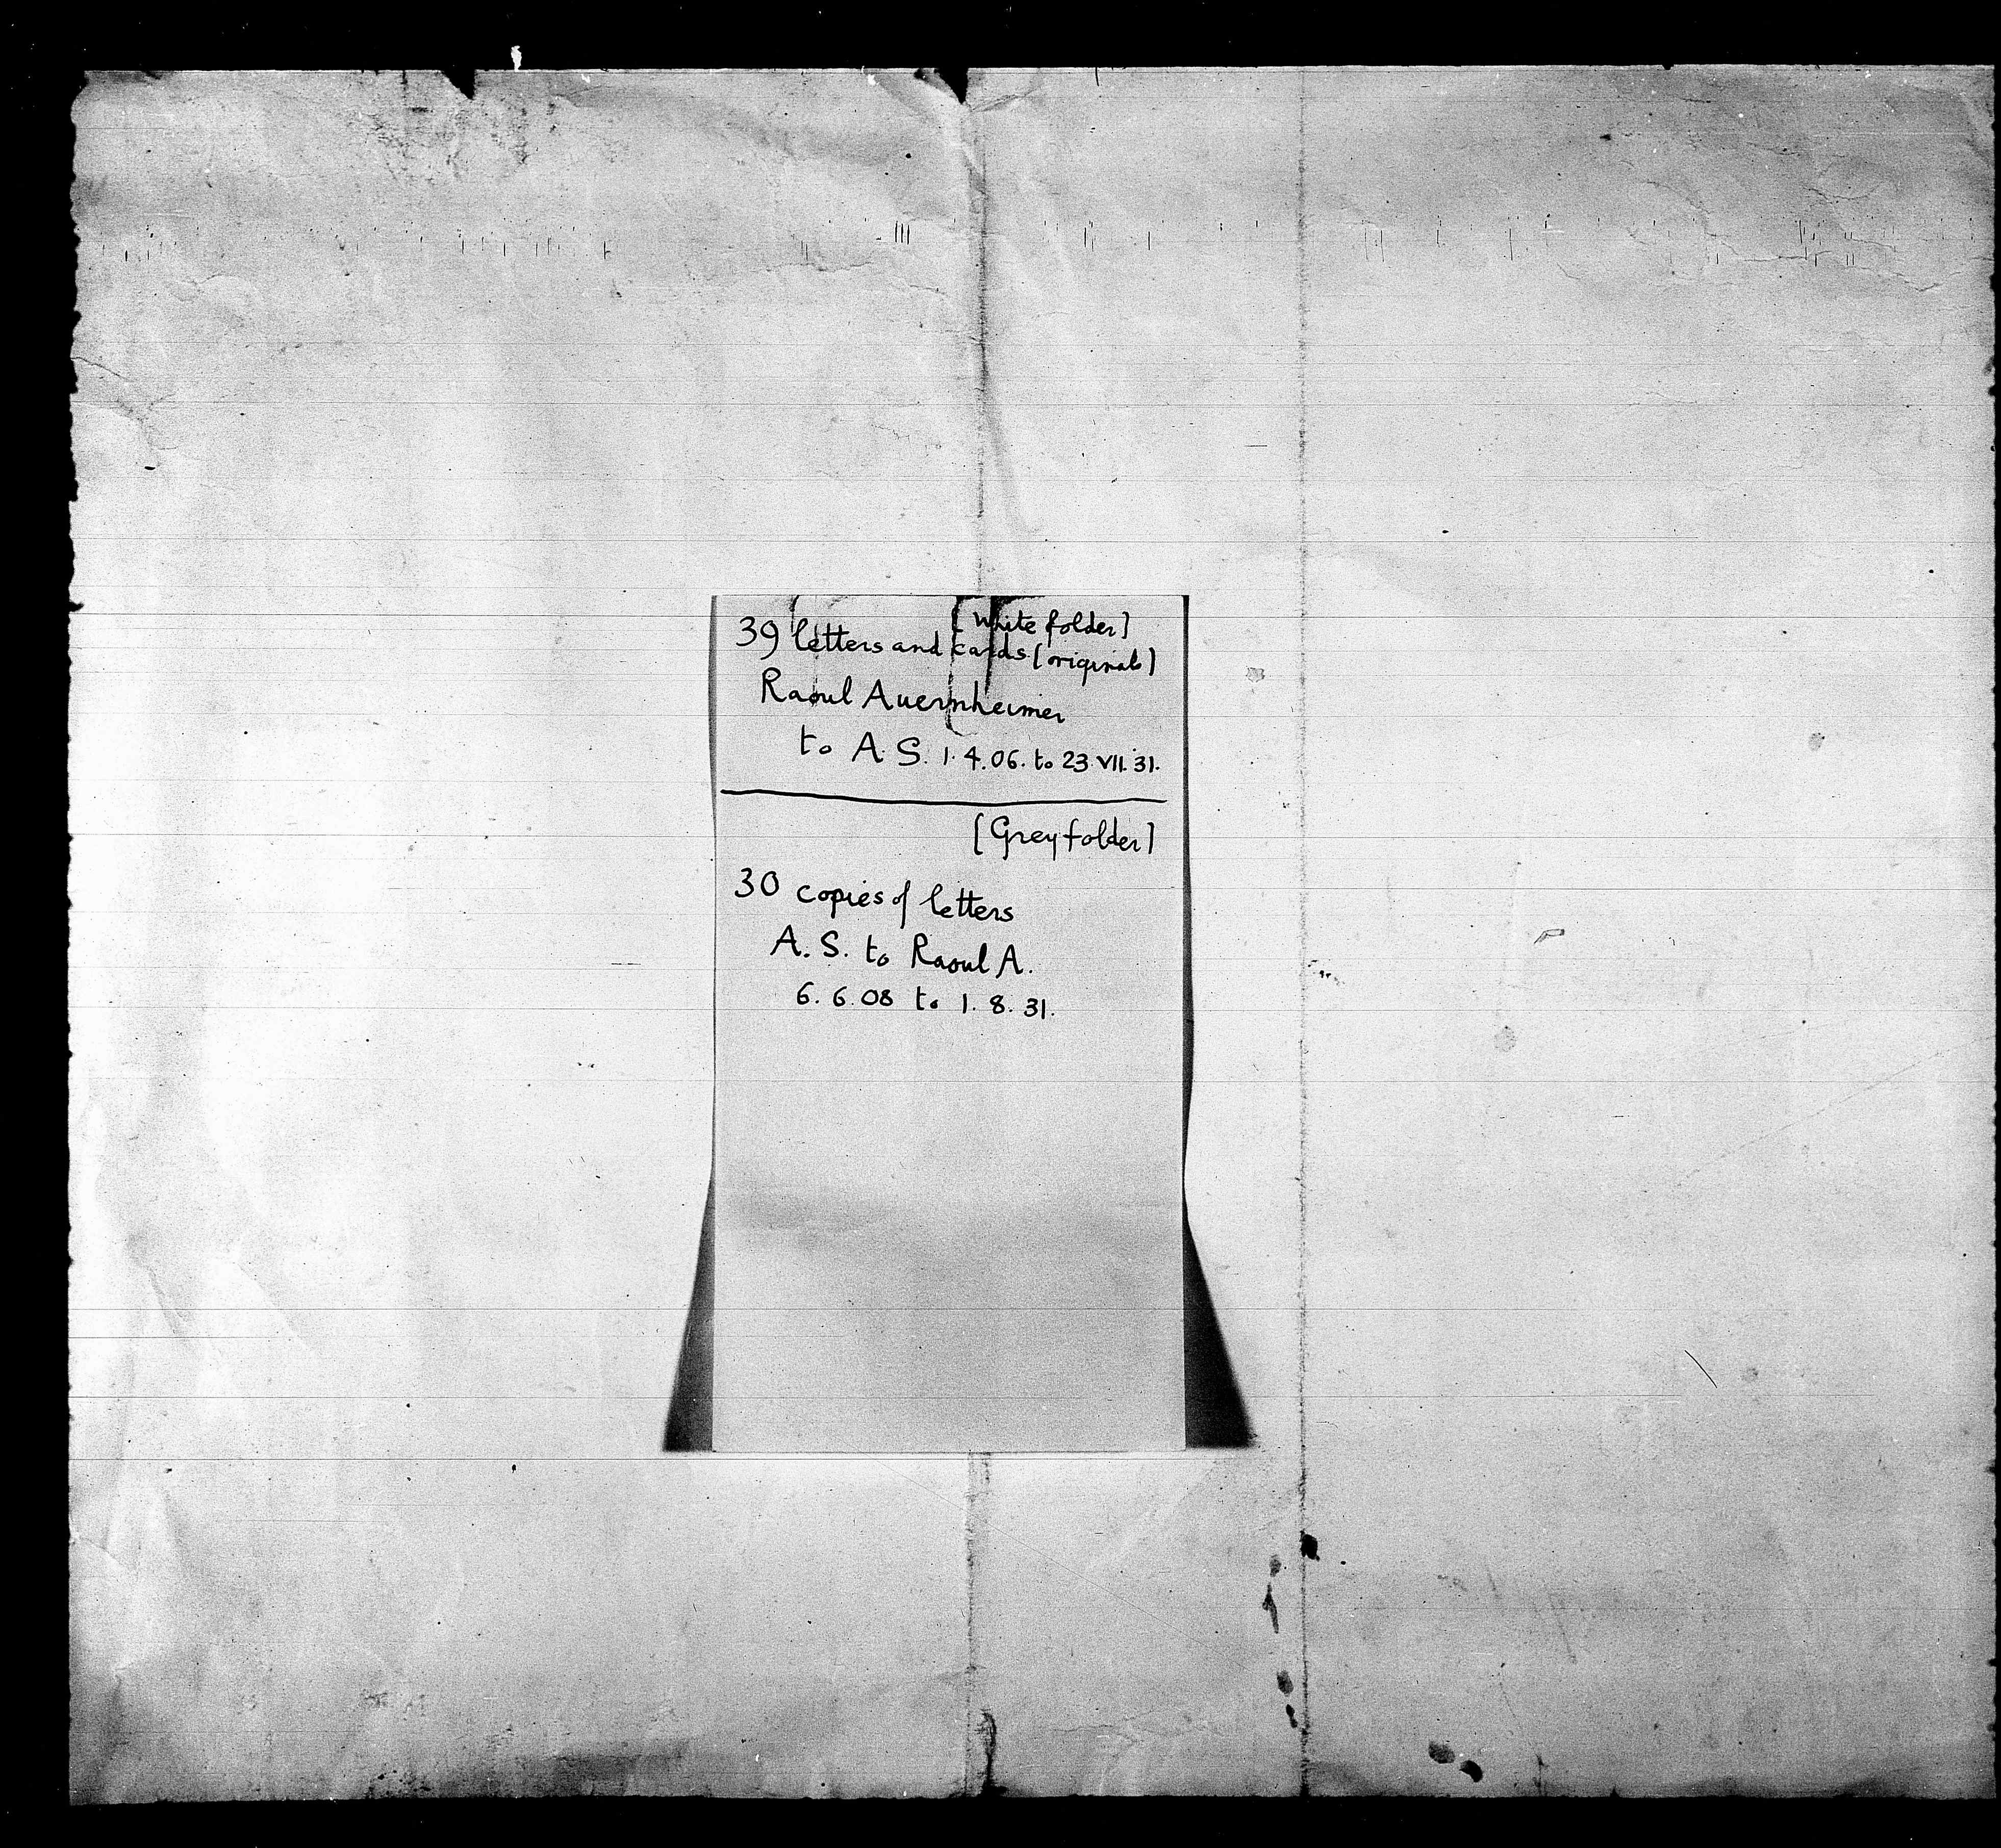 [White folder]
39 letters and cards [originals]
Raoul Auernheimer
to A. S. 1. 4. 06. to 23. VII. 31.
[Grey folder]
30 copies of letters
A. S. to Raoul A.
6. 6. 08 to 1. 8. 31.